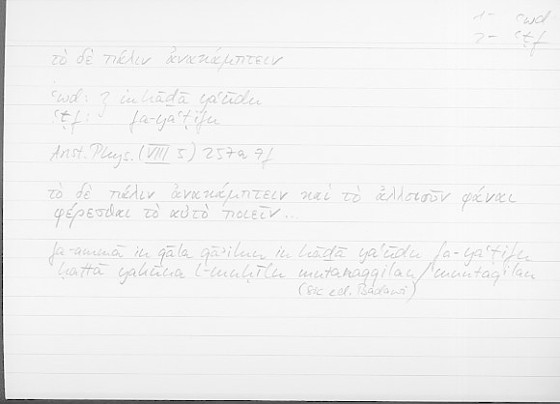 1 – ʿwd
2 – ʿṭf
τὸ δὲ πάλιν ἀνακάμπτειν
ʿwd: } in hāḏā yaʿūdu
ʿṭf: fa-yaʿṭifu
Arist. Phys. (VIII 5) 257a 7f
τὸ δὲ πάλιν ἀνακάμπτειν καὶ τὸ ἀλλοιοῦν φάναι
φέρεσθαι τὸ αὐτὸ ποιεῖν...
fa-ammā in qāla qāʾilun in hāḏā yaʿūdu fa-yaʿṭifu
ḥattā yakūna l-muḥīlu mutanaqqilan/muntaqilan
(sic ed. Badawī)